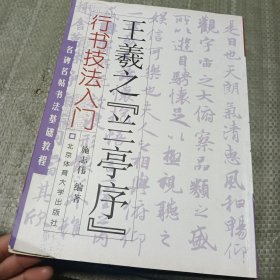 王羲之『兰亭序』
行书技法入门
名碑名帖书法基础教程
施志伟 编著
北京体育大学出版社
是日也天朗氣清惠風和暢仰
觀宇宙之大俯察品類之盛
所以遊目騁懷足以極視聽之
娛信可樂也夫人之相與俯仰